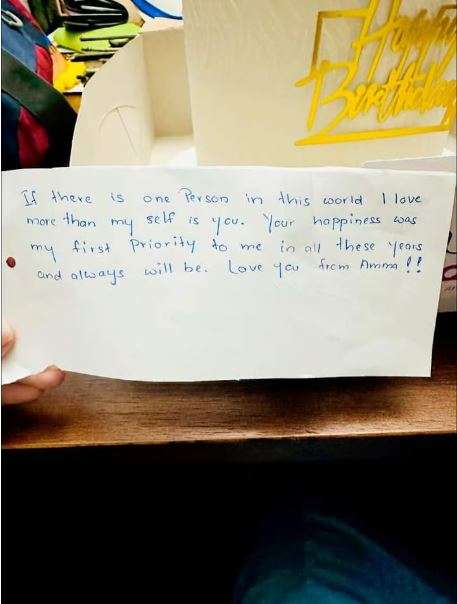 Happy
Birthday
If there is one Person in this world I love
more than my self is you. Your happiness was
my first Priority to me in all these years
and always will be. Love you from Amma!!